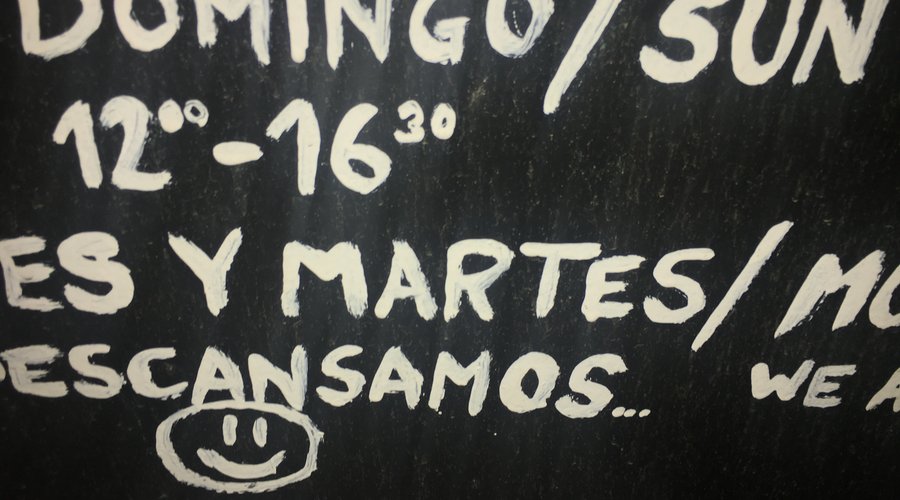 DOMINGO/SUN
12⁰⁰-16³⁰
ES Y MARTES/MO
DESCANSAMOS... WE A